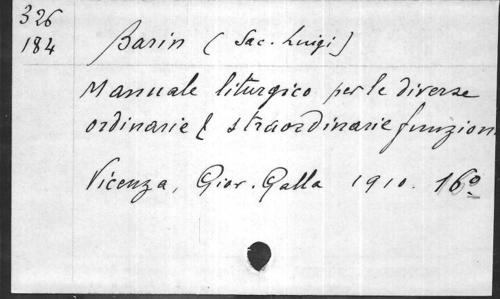 326
184
Barin (Sac. Luigi)
Manuale liturgico per le diverse
ordinarie e straordinarie funzion
Vicenza, Giov. Galla 1910. 16º